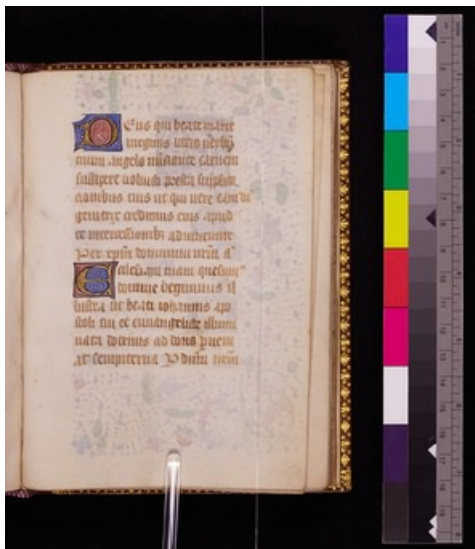 Deus qui beate marie
virginis utero verbū
tuum angelo nūciante carnem
suscipere voluisti presta supplici
tionibus tuis ut qui vere eam dei
genitricē credimus eius apud
te intercessionibȝ adiuvemur
Per xpm̄ dominum nrm̄ a
Ecclesiā tuam quesum
domine benignus il
lustra ut beati iohannis apo
stoli tui et euangeliste illumi
nata doctrinis ad dona pueni
at sempiterna P dnm̄ nrm̄